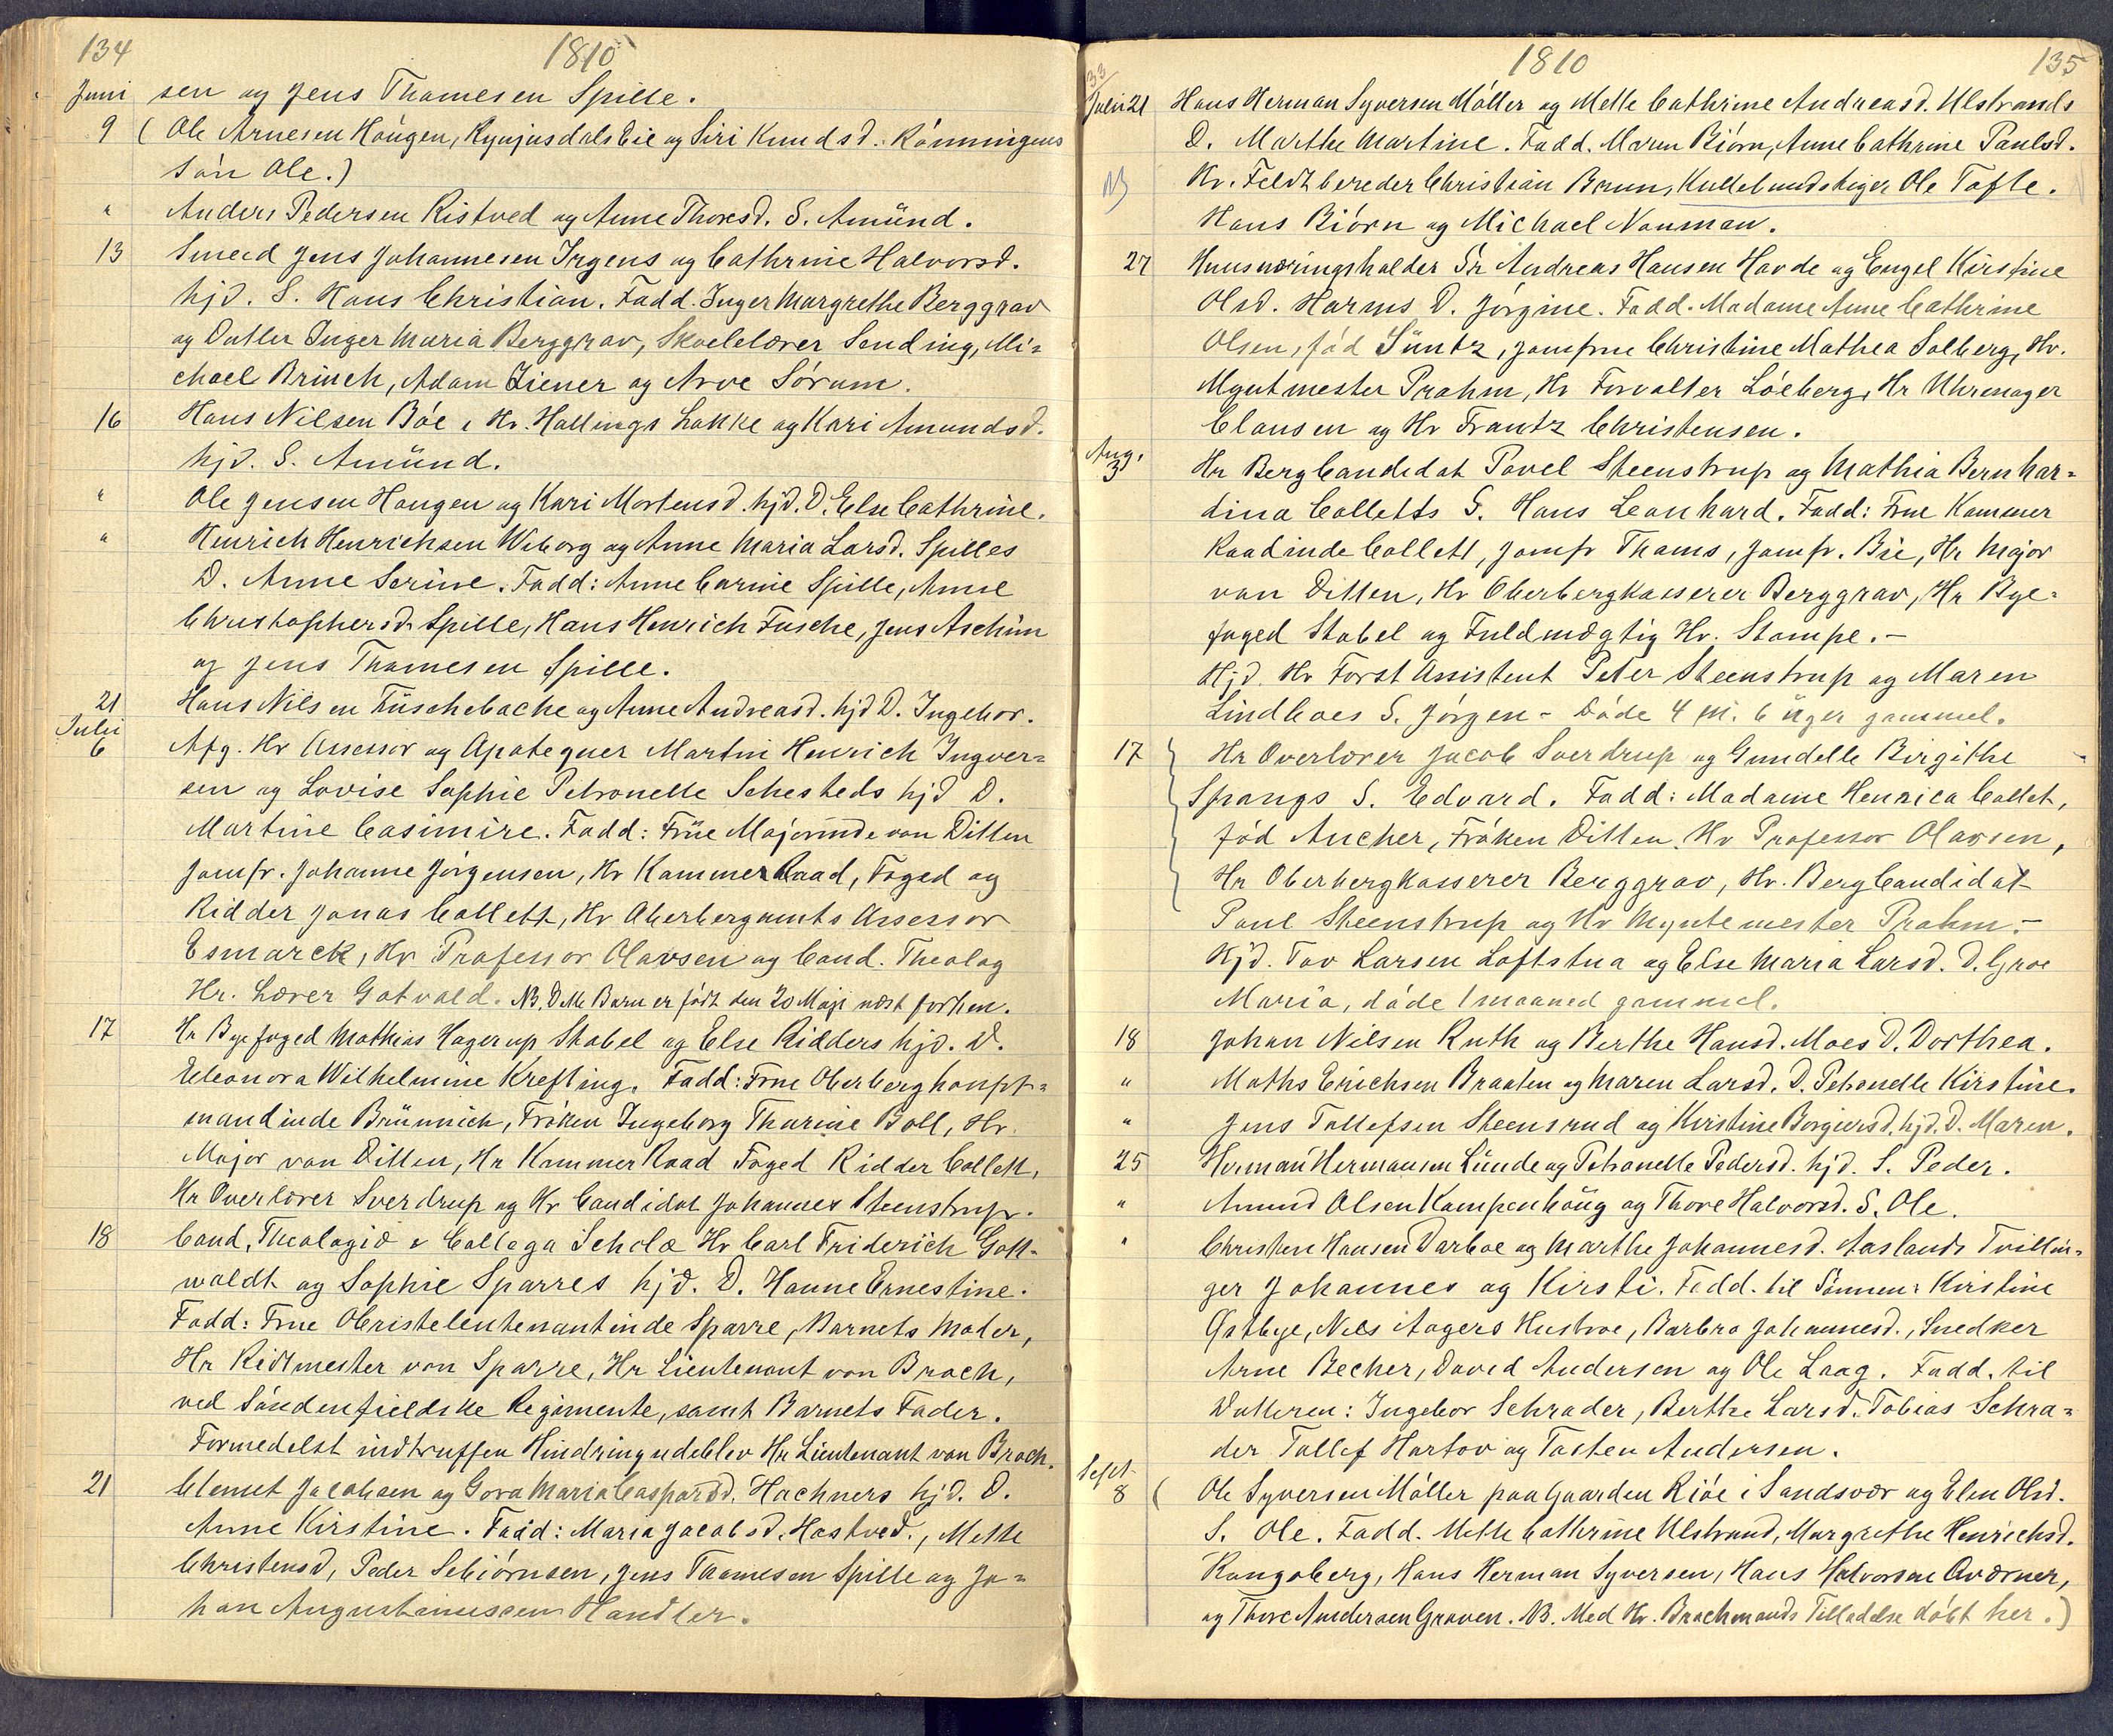 134
1810
Juni sen og Jens Thomesen Spille.
9 ( Ole Arnesen Höugen, Rynjusdals Eie og Siri Knudsd. Rönningens
sön Ole.)
" Anders Pedersen Ristved og Anne Thoresd. S. Amünd.
13 Smed Jens Johannesen Irgens og Cathrine Halvorsd.
hjd. S. Hans Christian. Fadd. Inger Margrethe Berggrav
og Datter Inger Maria Berggrav, Skolelærer Sending, Mi=
chael Brinch, Adam Ziener og Arve Sörum.
16 Hans Nilsen Böe i Hr. Hallings Løkke og Kari Amundsd.
hjd. S. Amünd.
" Ole Jensen Hougen og Kari Mortensd. hjd. D. Else Cathrine.
" Henrich Henrichsen Wiborg og Anne Maria Larsd. Spilles
D. Anne Serine. Fadd: Anne Carine Spille, Anne
Christophersd. Spille, Hans Henrich Fusche, Jens Aschim
og Jens Thomesen Spille.
21 Hans Nilsen Tüschebache og Anne Andreasd. hjd D. Ingebor.
Julii
6 Afg. Hr Assessor og Apotequer Martin Henrich Ingver=
sen og Lovise Sophie Petronelle Schesteds hjd D.
Martine Casimire. Fadd: Früe Majorinde von Ditten
Jomfr. Johanne Jörgensen, Hr Kammer Raad, Foged og
Ridder Jonas Collett, Hr Oberbergamts Assessor
Esmarck, Hr Professor Olavsen og Cand. Theolog
Hr. Lærer Gotvald. NB. Dette Barn er födt den 20 Maji næst forhen.
17 Hr Byefoged Mathias Hagerup Stabel og Else Ridders hjd. D.
Eleonora Wilhelmine Krefting. Fadd: Frue Oberberghoupt=
mandinde Brünnich, Fröken Ingeborg Thurine Boll, Hr.
Major von Ditten, Hr Kammer Raad Foged Ridder Collett,
Hr Overlærer Sverdrup og Hr Candidat Johannes Steenstrup.
18 Cand. Theologiæ & Collega Scholæ Hr Carl Friderich Gott=
waldt og Sophie Sparres hjd. D. Hanne Ernestine.
Fadd: Frue Obristeleutenantinde Sparre, Barnets Moder,
Hr Ridtmester von Sparre, Hr Lieutenant von Brock,
ved Söndenfieldske Regimente, samt Barnets Fader.
Formedelst indtruffen Hindring udeblev Hr Lieutenant von Brock.
21 Clemet Jacobsen og Gora Maria Caspersd. Hachners hjd. D.
Anne Kirstine. Fadd: Maria Jacobsd. Hostved., Mette
Christensd, Peder Sebiörnsen, Jens Thomesen Spille og Jo=
han Augustinussen Handler.
1810
135
33
Julii 21 Hans Herman Syversen Möller og Mette Cathrine Andreasd. Ulstrands
D. Marthe Martine. Fadd. Maren Biörn, Anne Cathrine Paulsd.
NB Hr. Feldtbereder Christian Brun, Kullebundstiger Ole Tofte.
Hans Biörn og Michael Nauman.
27 Huusnæringsholder Sr Andreas Hansen Hovde og Engel Kirstine
Olsd. Harms D. Jörgine. Fadd. Madame Anne Cathrine
Olsen, föd Süntz, Jomfrue Christine Mathea Solberg, Hr.
Myntmester Prahm, Hr Forvalter Löeberg, Hr Uhrmager
Clausen og Hr Frantz Christensen.
Aug.
3 Hr Berg Candidat Povel Steenstrup og Mathia Bernhar=
dina Colletts S. Hans Leonhard. Fadd: Frue Kammer
Raadinde Collett, Jomfr Thams, Jomfr. Bie, Hr Major
von Ditten, Hr Oberbergkasserer Berggrav, Hr Bye=
foged Stabel og Fuldmægtig Hr. Stampe.–
Hjd. Hr Forst Assistent Peter Steenstrup og Maren
Lindboes S. Jörgen - Döde 4 M. 6 üger gammel.
17 Hr Overlærer Jacob Sverdrup og Gundelle Birgithe
Spangs S. Edvard. Fadd: Madame Henrica Collet,
föd Ancher, Fröken Ditten, Hr Professor Olavsen,
Hr Oberbergkasserer Berggrav, Hr. Berg Candidat
Poul Steenstrup og Hr Myntemester Prahm.–
Hjd. Tov Larsen Loftstua og Else Maria Larsd. D. Groe
Maria, döde 1 maaned gammel.
18 Johan Nilsen Ruth og Berthe Hansd. Moes D. Dorthea.
" Mathis Erichsen Braaten og Maren Larsd. D. Petronelle Kirstine.
" Jens Tollefsen Steensrud og Kirstine Borgersd. hjd. D. Maren.
25 Herman Hermansen Lünde og Petronelle Pedersd. hjd. S. Peder.
" Amund Olsen Kampenhöug og Thore Halvorsd. S. Ole.
" Christen Hansen Darboe og Marthe Johannesd. Aaslands Tvillin=
ger Johannes og Kirsti. Fadd. til Sönnen: Kirstine
Østbye, Nils Aagers Hustroe, Barbra Johannesd., Snedker
Arne Becher, David Andersen og Ole Laag. Fadd. til
Datteren: Ingebor Schrader, Berthe Larsd. Tobias Schra=
der Tollef Hartov og Tosten Andersen.
Sept
8 ( Ole Syversen Möller paa Gaarden Riöe i Sandsvær og Elen Olsd.
S. Ole. Fadd. Mette Cathrine Ulstrand, Margrethe Henrichsd.
Kongsberg, Hans Herman Syversen, Hans Halvorsen Aværner,
og Thore Andersen Graven. NB. Med Hr. Brochmands Tilladelse döbt her.)